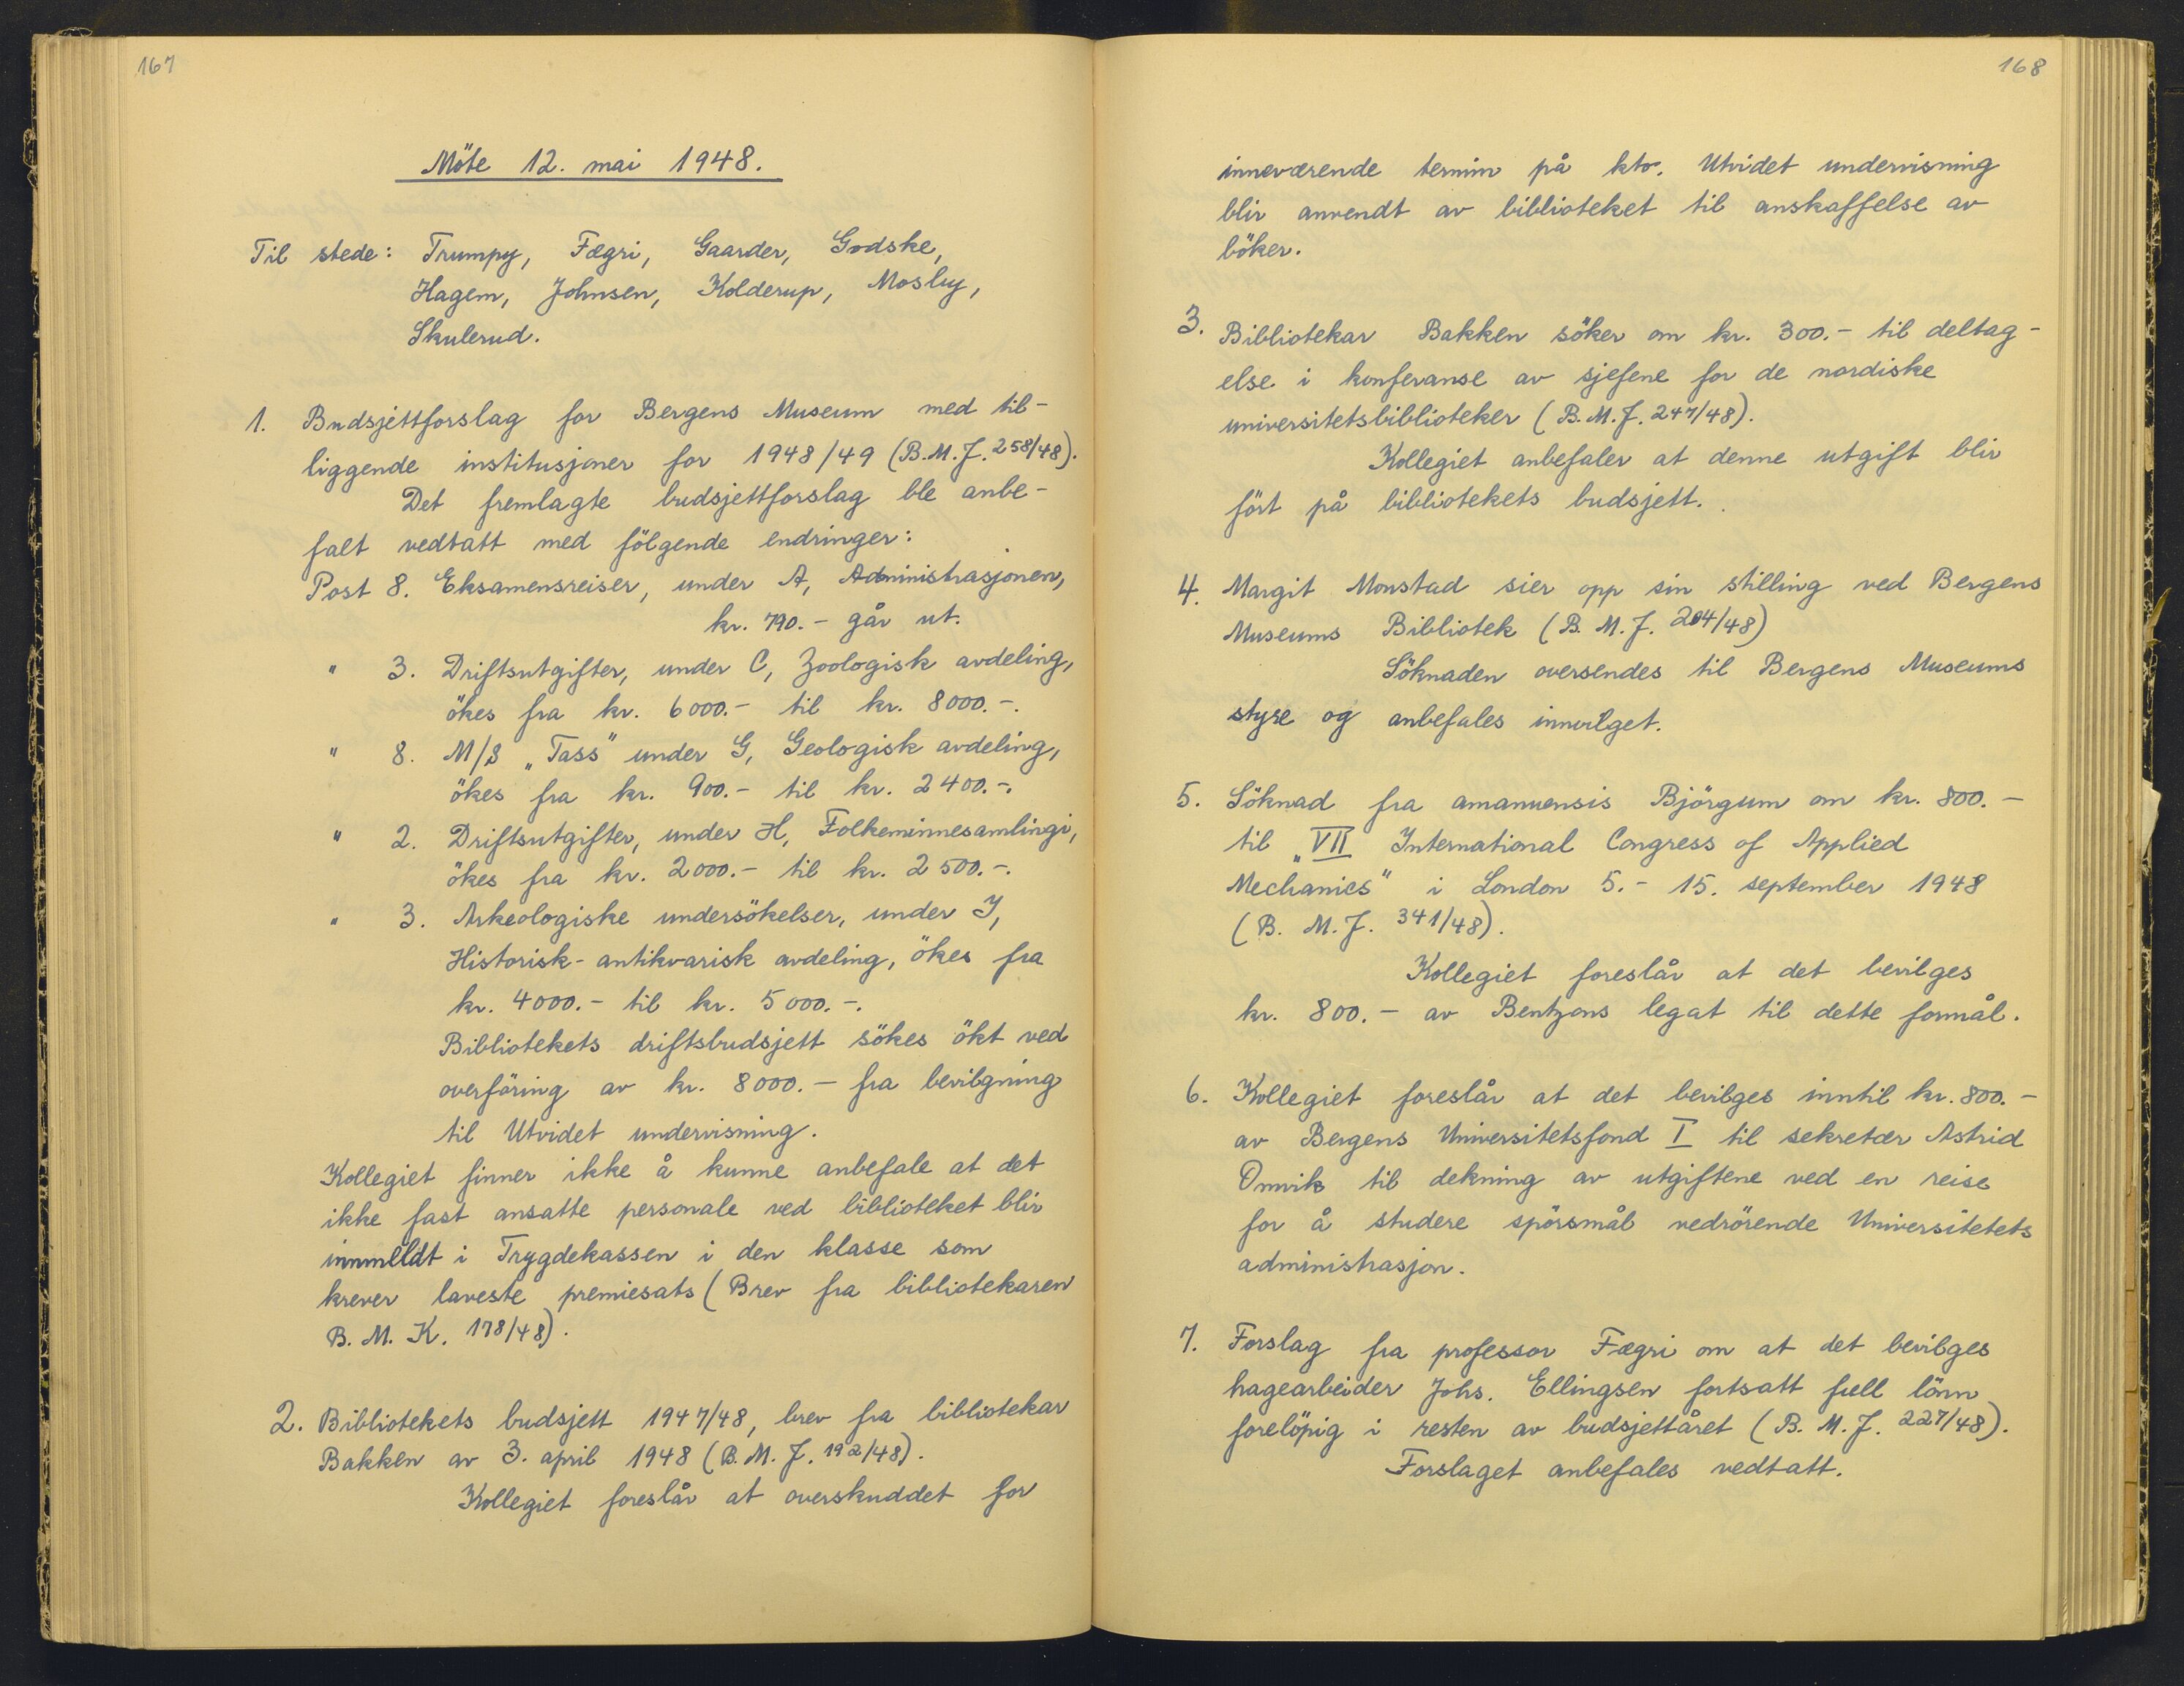 167
Möte 12. mai 1948.
Til stede: Trumpy, Fægri, Gaarder, Godske,
Hagem, Johnsen, Kolderup, Mosby,
Skulerud.
1. Budsjettforslag for Bergens Museum med til-
liggende institusjoner for 1948/49 (B.M.J. 258/48).
Det fremlagte budsjettforslag ble anbe-
falt vedtatt med fölgende endringer:
Post 8. Eksamensreiser, under A, Administrasjonen,
kr. 790.- går ut.
" 3. Driftsutgifter, under C, Zoologisk avdeling,
ökes fra kr. 6000.- til kr. 8000.-.
" 8. M/S „Tass" under G, Geologisk avdeling,
ökes fra kr. 900.- til kr. 2400.-.
" 2. Driftsutgifter, under H, Folkeminnesamlingi,
ökes fra kr. 2000.- til kr. 2500.-.
" 3. Arkeologiske undersökelser, under J,
Historisk-antikvarisk avdeling, ökes fra
kr. 4000.- til kr. 5000.-.
Bibliotekets driftsbudsjett sökes ökt ved
overföring av kr. 8000.- fra bevilgning
til Utvidet undervisning.
Kollegiet finner ikke å kunne anbefale at det
ikke fast ansatte personale ved biblioteket blir
innmeldt i Trygdekassen i den klasse som
krever laveste premiesats (Brev fra bibliotekaren
B. M. K. 178/48).
2. Bibliotekets budsjett 1947/48, brev fra bibliotekar
Bakken av 3. april 1948 (B.M.J. 192/48).
Kollegiet foreslår at overskuddet for
168
inneværende termin på kto. Utvidet undervisning
blir anvendt av biblioteket til anskaffelse av
böker.
3. Bibliotekar Bakken söker om kr. 300.- til deltag-
else i konferanse av sjefene for de nordiske
universitetsbiblioteker (B.M.J. 247/48).
Kollegiet anbefaler at denne utgift blir
fört på bibliotekets budsjett.
4. Margit Monstad sier opp sin stilling ved Bergens
Museums Bibliotek (B. M. J. 204/48)
Söknaden oversendes til Bergens Museums
styre og anbefales innvilget.
5. Söknad fra amanuensis Björgum om kr. 800.-
til „VII International Congress of Applied
Mechanics" i London 5.- 15. september 1948
(B. M. J. 341/48).
Kollegiet foreslår at det bevilges
kr. 800.- av Bentzons legat til dette formål.
6. Kollegiet foreslår at det bevilges inntil kr. 800.-
av Bergens Universitetsfond I til sekretær Astrid
Onvik til dekning av utgiftene ved en reise
for å studere spörsmål vedrörende Universitetets
administrasjon.
7. Forslag fra professor Fægri om at det bevilges
hagearbeider Johs. Ellingsen fortsatt full lönn
forelöpig i resten av budsjettåret (B. M. J. 227/48).
Forslaget anbefales vedtatt.